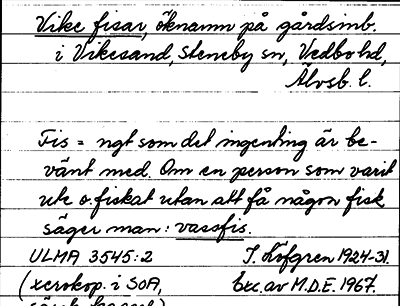 Vike fisar, öknamn på gårdsinb.
i Vikesand, Steneby sn, Vedbo hd,
Älvsb. l.
Fis = ngt som det ingenting är be-
vänt med. Om en person som varit
ute o. fiskat utan att få någon fisk
säger man: vassfis.
ULMA 3545:2 J. Löfgren 1924-31.
(xerokop. i SOA, Exc. av M.D.E. 1967.